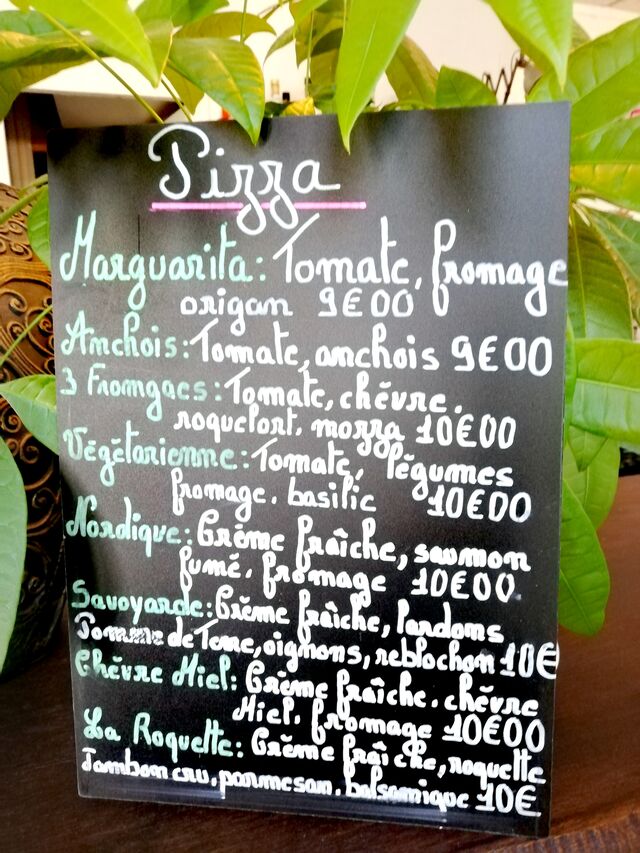 Pizza
Marguarita: Tomate, fromage
origan 9€00
Anchois: Tomate, anchois 9€00
3 Fromgaes: Tomate, chèvre,
roquefort, mozza 10€00
Végétarienne: Tomate, légumes
fromage, basilic 10€00
Nordique: Crème fraîche, saumon
fumé, fromage 10€00
Savoyarde: Crème fraîche, lardons
Pomme de Terre, oignons, reblochon 10€
Chèvre Miel: Crème fraîche, chèvre
Miel, fromage 10€00
La Roquette: Crème fraîche, roquette
Jambon cru, parmesan, balsamique 10€